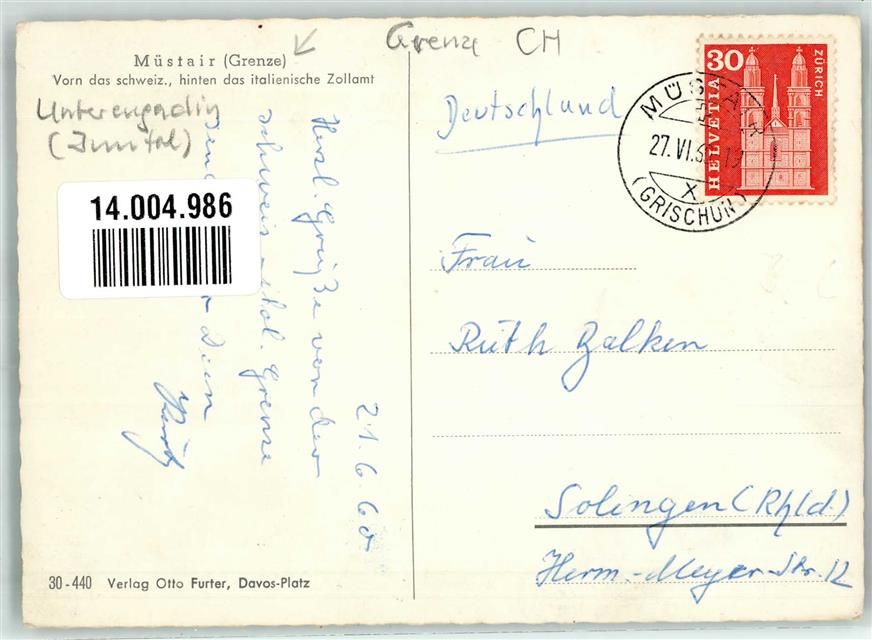 Müstair (Grenze)
Vorn das schweiz., hinten das italienische Zollamt
Grenze CH
Unterengadin
(Inntal)
14.004.986
21.6.60
Herzl. Grüße von der
schweiz.-ital. Grenze
sendet Dein
30-440 Verlag Otto Furter, Davos-Platz
Deutschland
30
ZÜRICH
HELVETIA
MÜSTAIR
27.VI.60-19
X
(GRISCHUN)
Frau
Ruth Balken
Solingen (Rhld.)
Herm.-Meyer-Str. 12